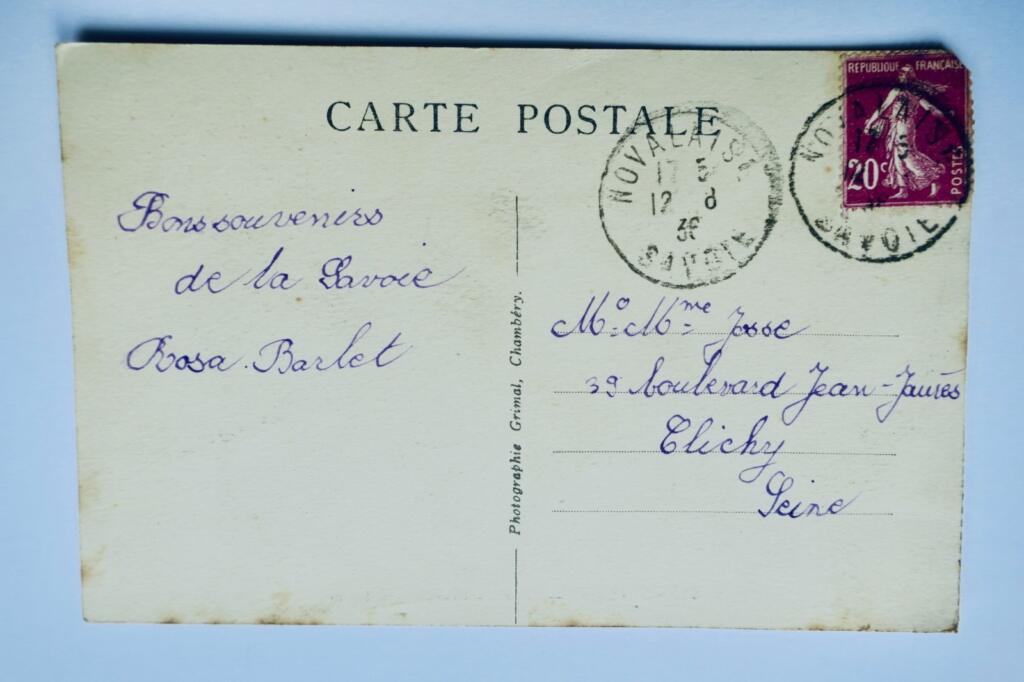 CARTE POSTALE
Bons souvenirs
de la Savoie
Rosa Barlet
Photographie Grimal, Chambéry.
REPUBLIQUE FRANÇAISE
20c
POSTES
NOVALAISE
12 8
36
SAVOIE
NOVALAISE
SAVOIE
Mo. Mme Josse
39 boulevard Jean-Jaurès
Clichy
Seine